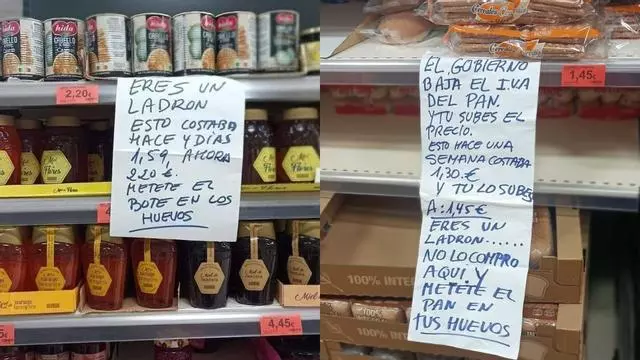 hida
CABELLO
hida
CABELLO
2,20€
ERES UN
LADRON
ESTO COSTABA
HACE 4 DIAS
1,59, AHORA
220 €.
METETE EL
BOTE EN LOS
HUEVOS
Flores
Miel de
4,45€
EL GOBIERNO
BAJA EL I.V.A
DEL PAN.
Y TU SUBES EL
PRECIO.
ESTO HACE UNA
SEMANA COSTABA
1,30 €
Y TU LO SUBES
A: 1,45 €
ERES UN
LADRON......
NO LO COMPRO
AQUI Y
METETE EL
PAN EN
TUS HUEVOS
1,45€
100% INTE
100%